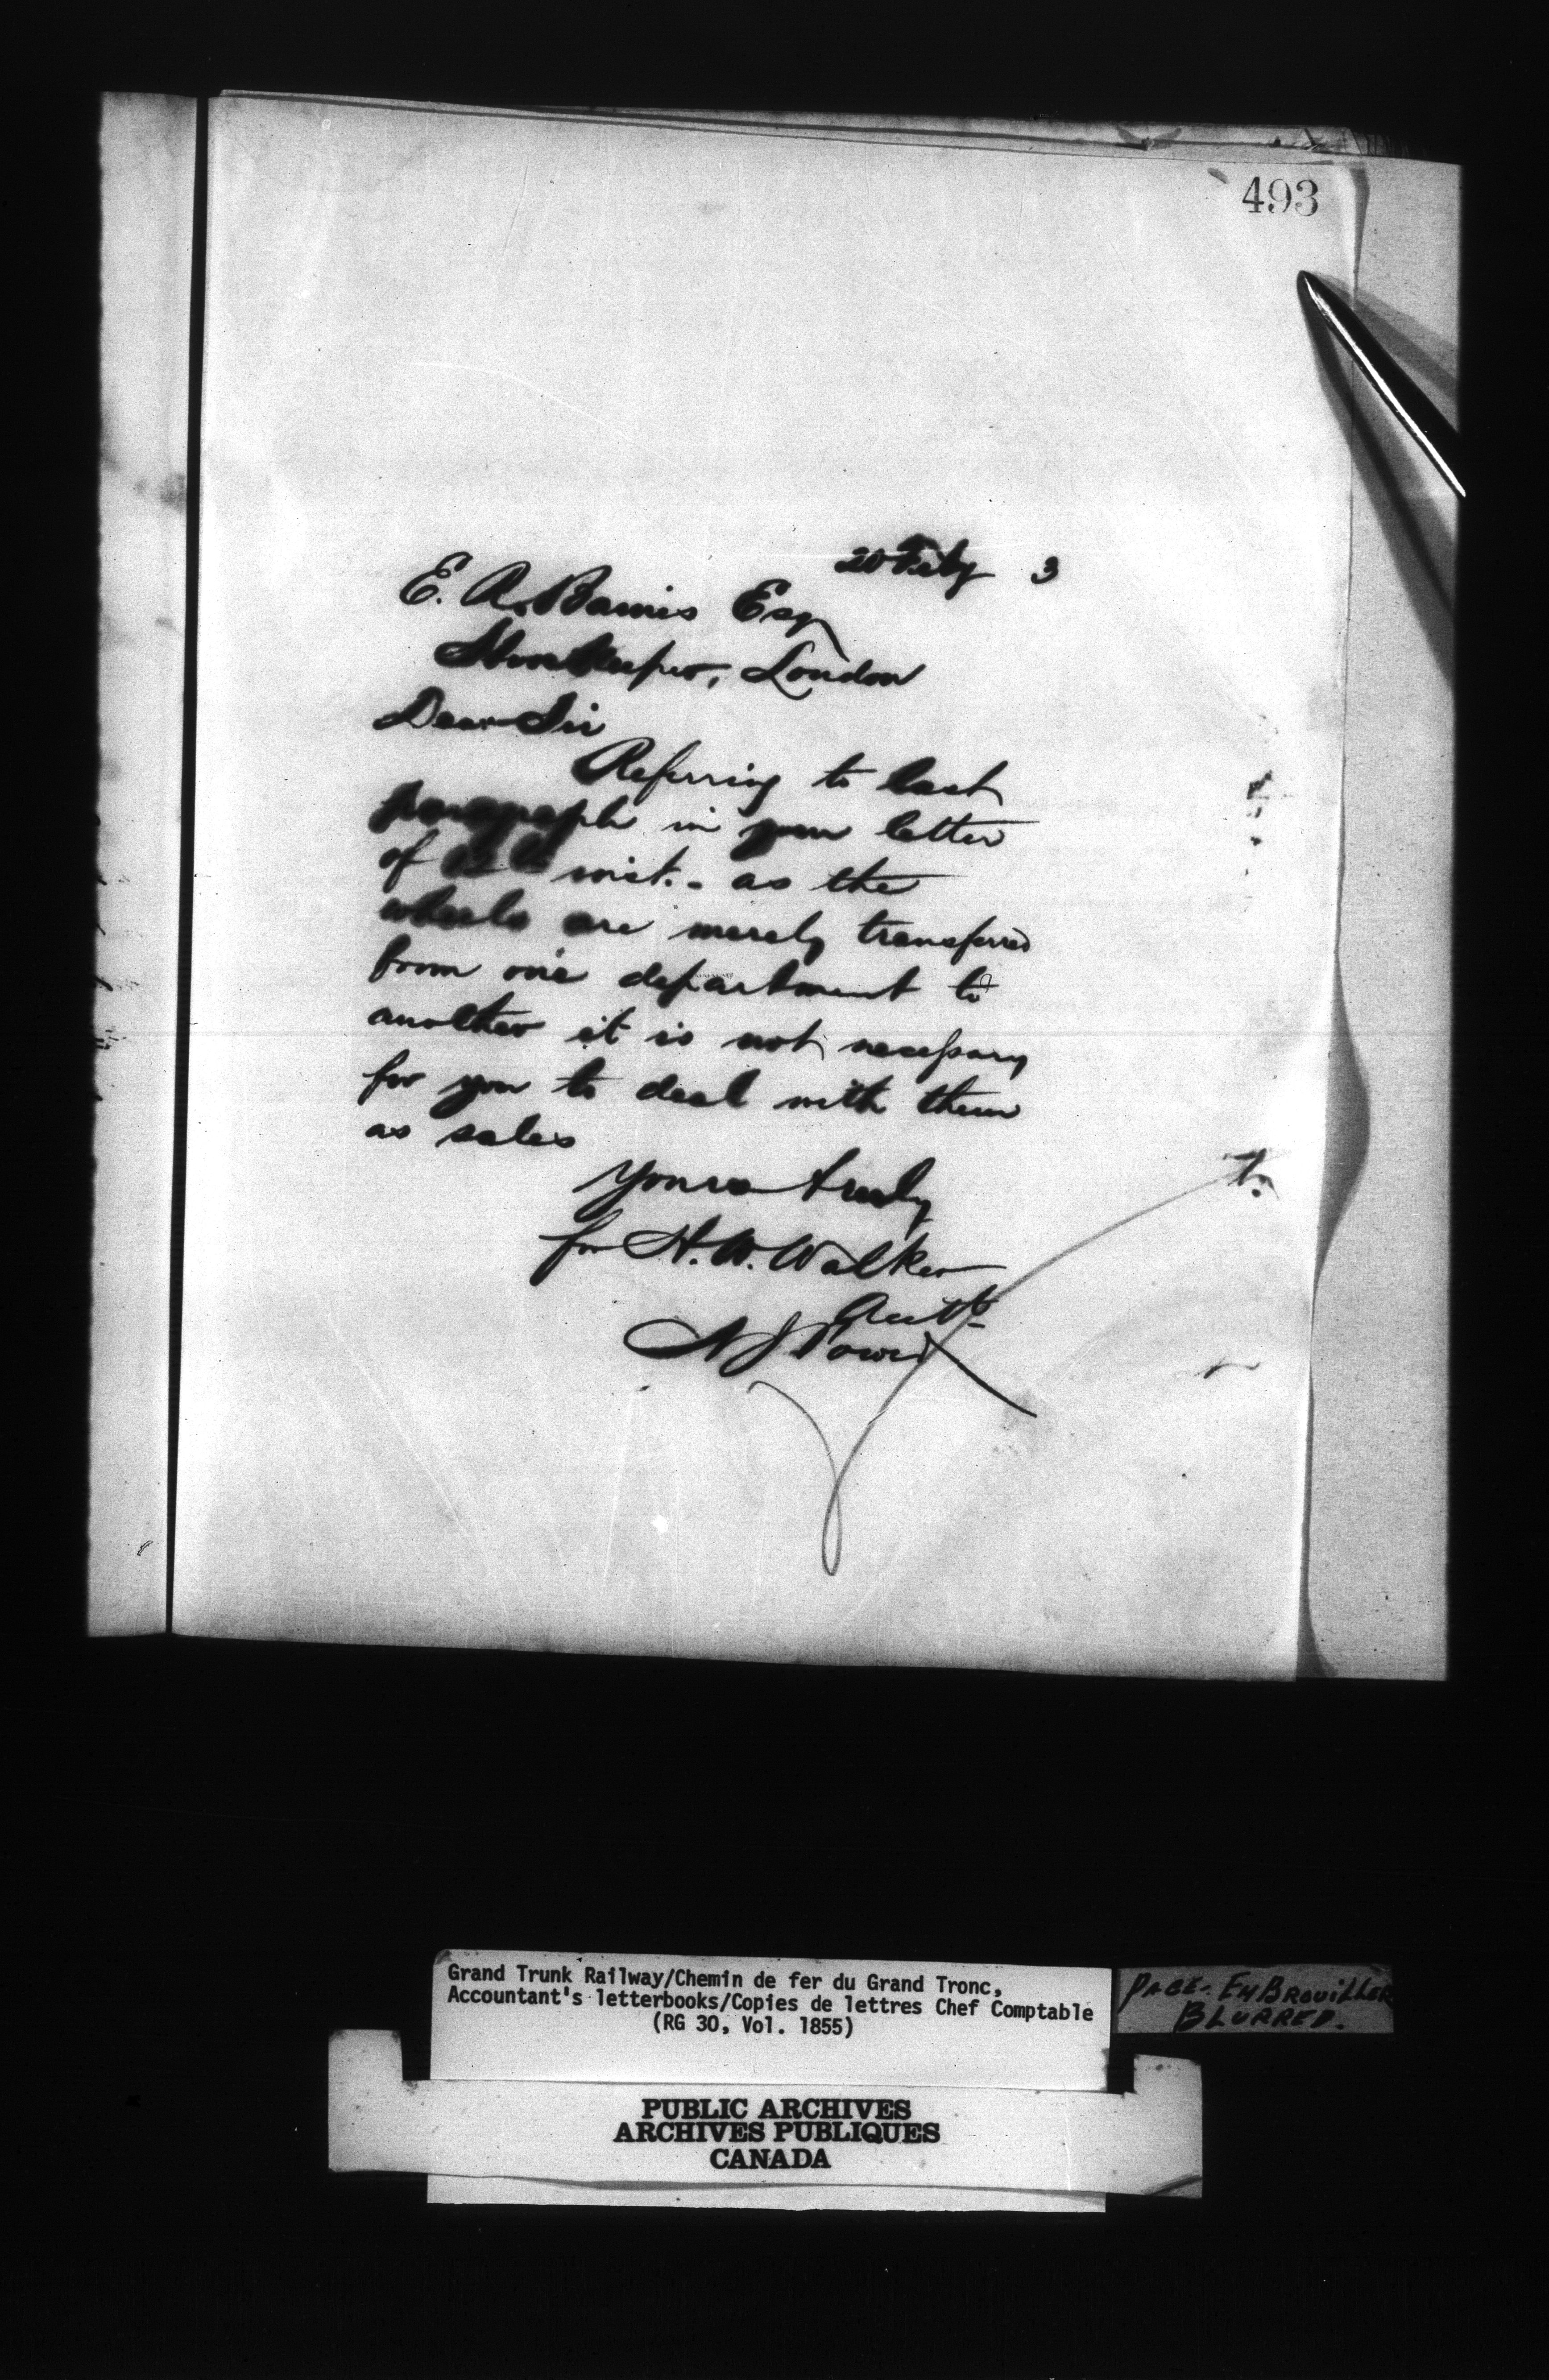 493
20 Feby 3
E. A. Barnes Esq
Storekeeper, London
Dear Sir
Referring to last
paragraph in your letter
of 12th inst. - as the
wheels are merely transferred
from one department to
another it is not necessary
for you to deal with them
as sales
Yours truly
for H. W. Walker
Acctt
Grand Trunk Railway/Chemin de fer du Grand Tronc,
Accountant's letterbooks/Copies de lettres Chef Comptable
(RG 30, Vol. 1855)
PAGE - EMBROUILLER
BLURRED.
PUBLIC ARCHIVES
ARCHIVES PUBLIQUES
CANADA